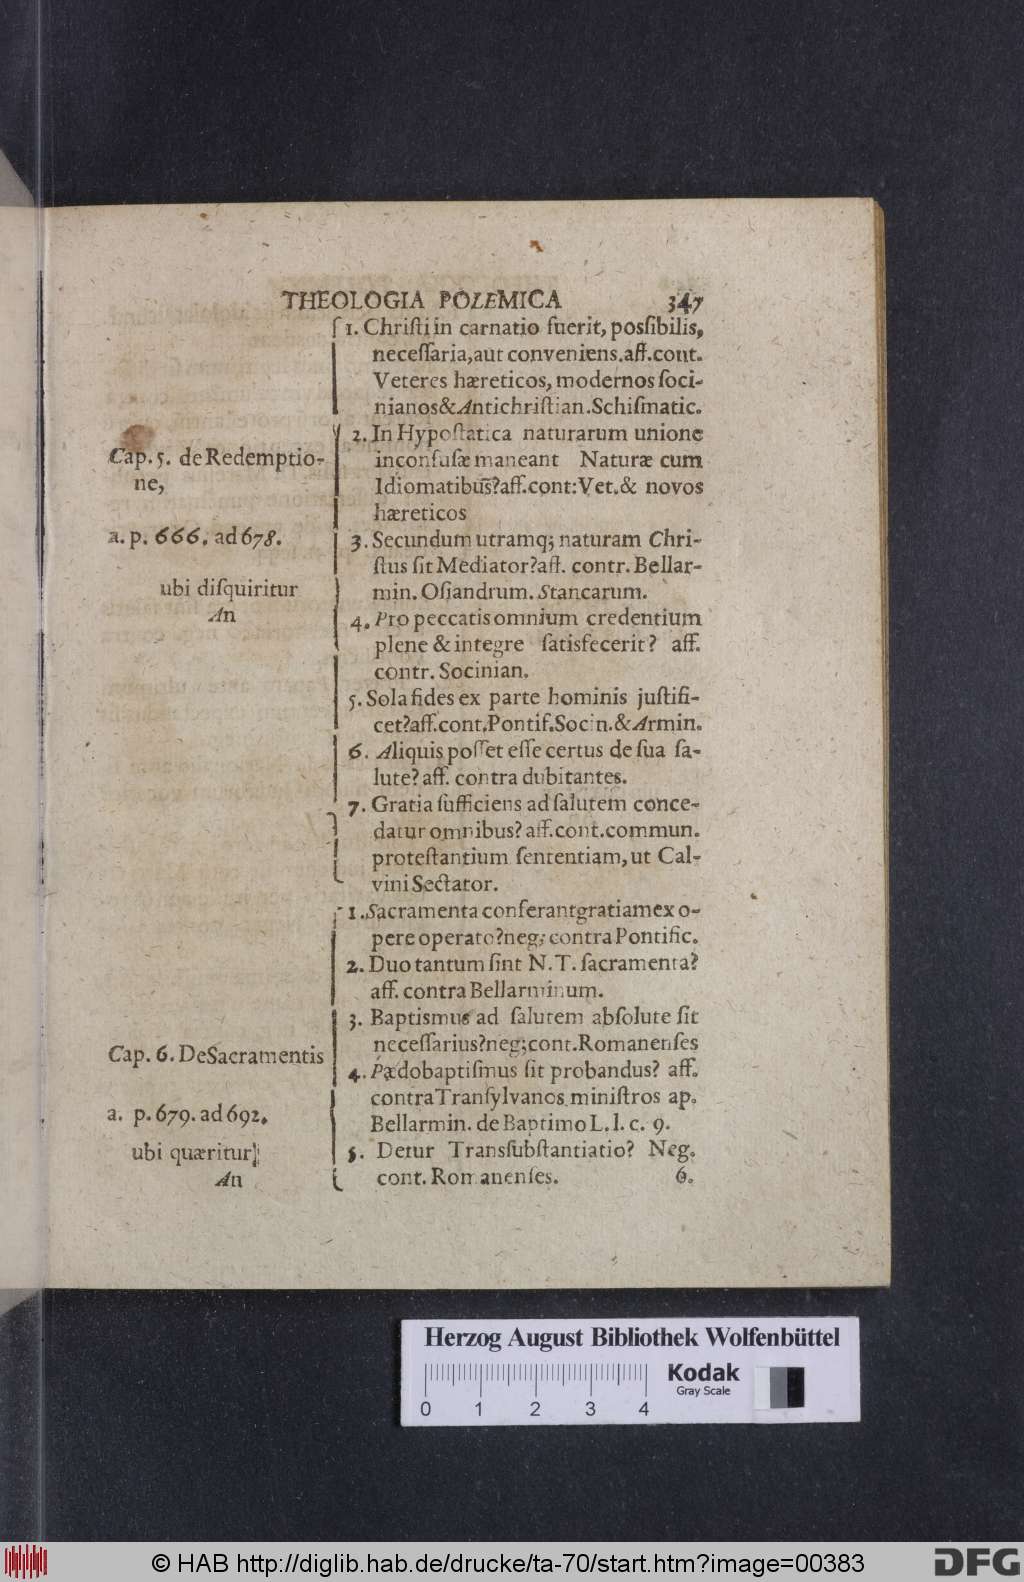 THEOLOGIA POLEMICA 347
1. Chriſti in carnatio fuerit, poſſibilis,
neceſſaria, aut conveniens. aff. cont.
Veteres hæreticos, modernos ſoci-
nianos & Antichriſtian. Schiſmatic.
2. In Hypoſtatica naturarum unione
inconfuſæ maneant Naturæ cum
Idiomatibus? aff. cont: Vet. & novos
hæreticos
Cap. 5. de Redemptio-
ne,
a. p. 666. ad 678.
ubi diſquiritur
An
3. Secundum utramq; naturam Chri-
ſtus ſit Mediator? aff. contr. Bellar-
min. Oſiandrum. Stancarum.
4. Pro peccatis omnium credentium
plene & integre ſatisfecerit? aff.
contr. Socinian.
5. Sola fides ex parte hominis juſtifi-
cet? aff. cont. Pontif. Socin. & Armin.
6. Aliquis poſſet eſſe certus de ſua ſa-
lute? aff. contra dubitantes.
7. Gratia ſufficiens ad ſalutem conce-
datur omnibus? aff. cont. commun.
proteſtantium ſententiam, ut Cal-
vini Sectator.
1. Sacramenta conferant gratiam ex o-
pere operato? neg; contra Pontific.
2. Duo tantum ſint N. T. ſacramenta?
aff. contra Bellarminum.
3. Baptismus ad ſalutem abſolute ſit
neceſſarius? neg; cont. Romanenſes
Cap. 6. De Sacramentis
a. p. 679. ad 692.
ubi quæritur
An
4. Pædobaptiſmus ſit probandus? aff.
contra Tranſylvanos miniſtros ap.
Bellarmin. de Baptimo L. l. c. 9.
5. Detur Transſubſtantiatio? Neg.
cont. Romanenſes. 6.
Herzog August Bibliothek Wolfenbüttel
Kodak
Gray Scale
0 1 2 3 4
© HAB http://diglib.hab.de/drucke/ta-70/start.htm?image=00383
DFG